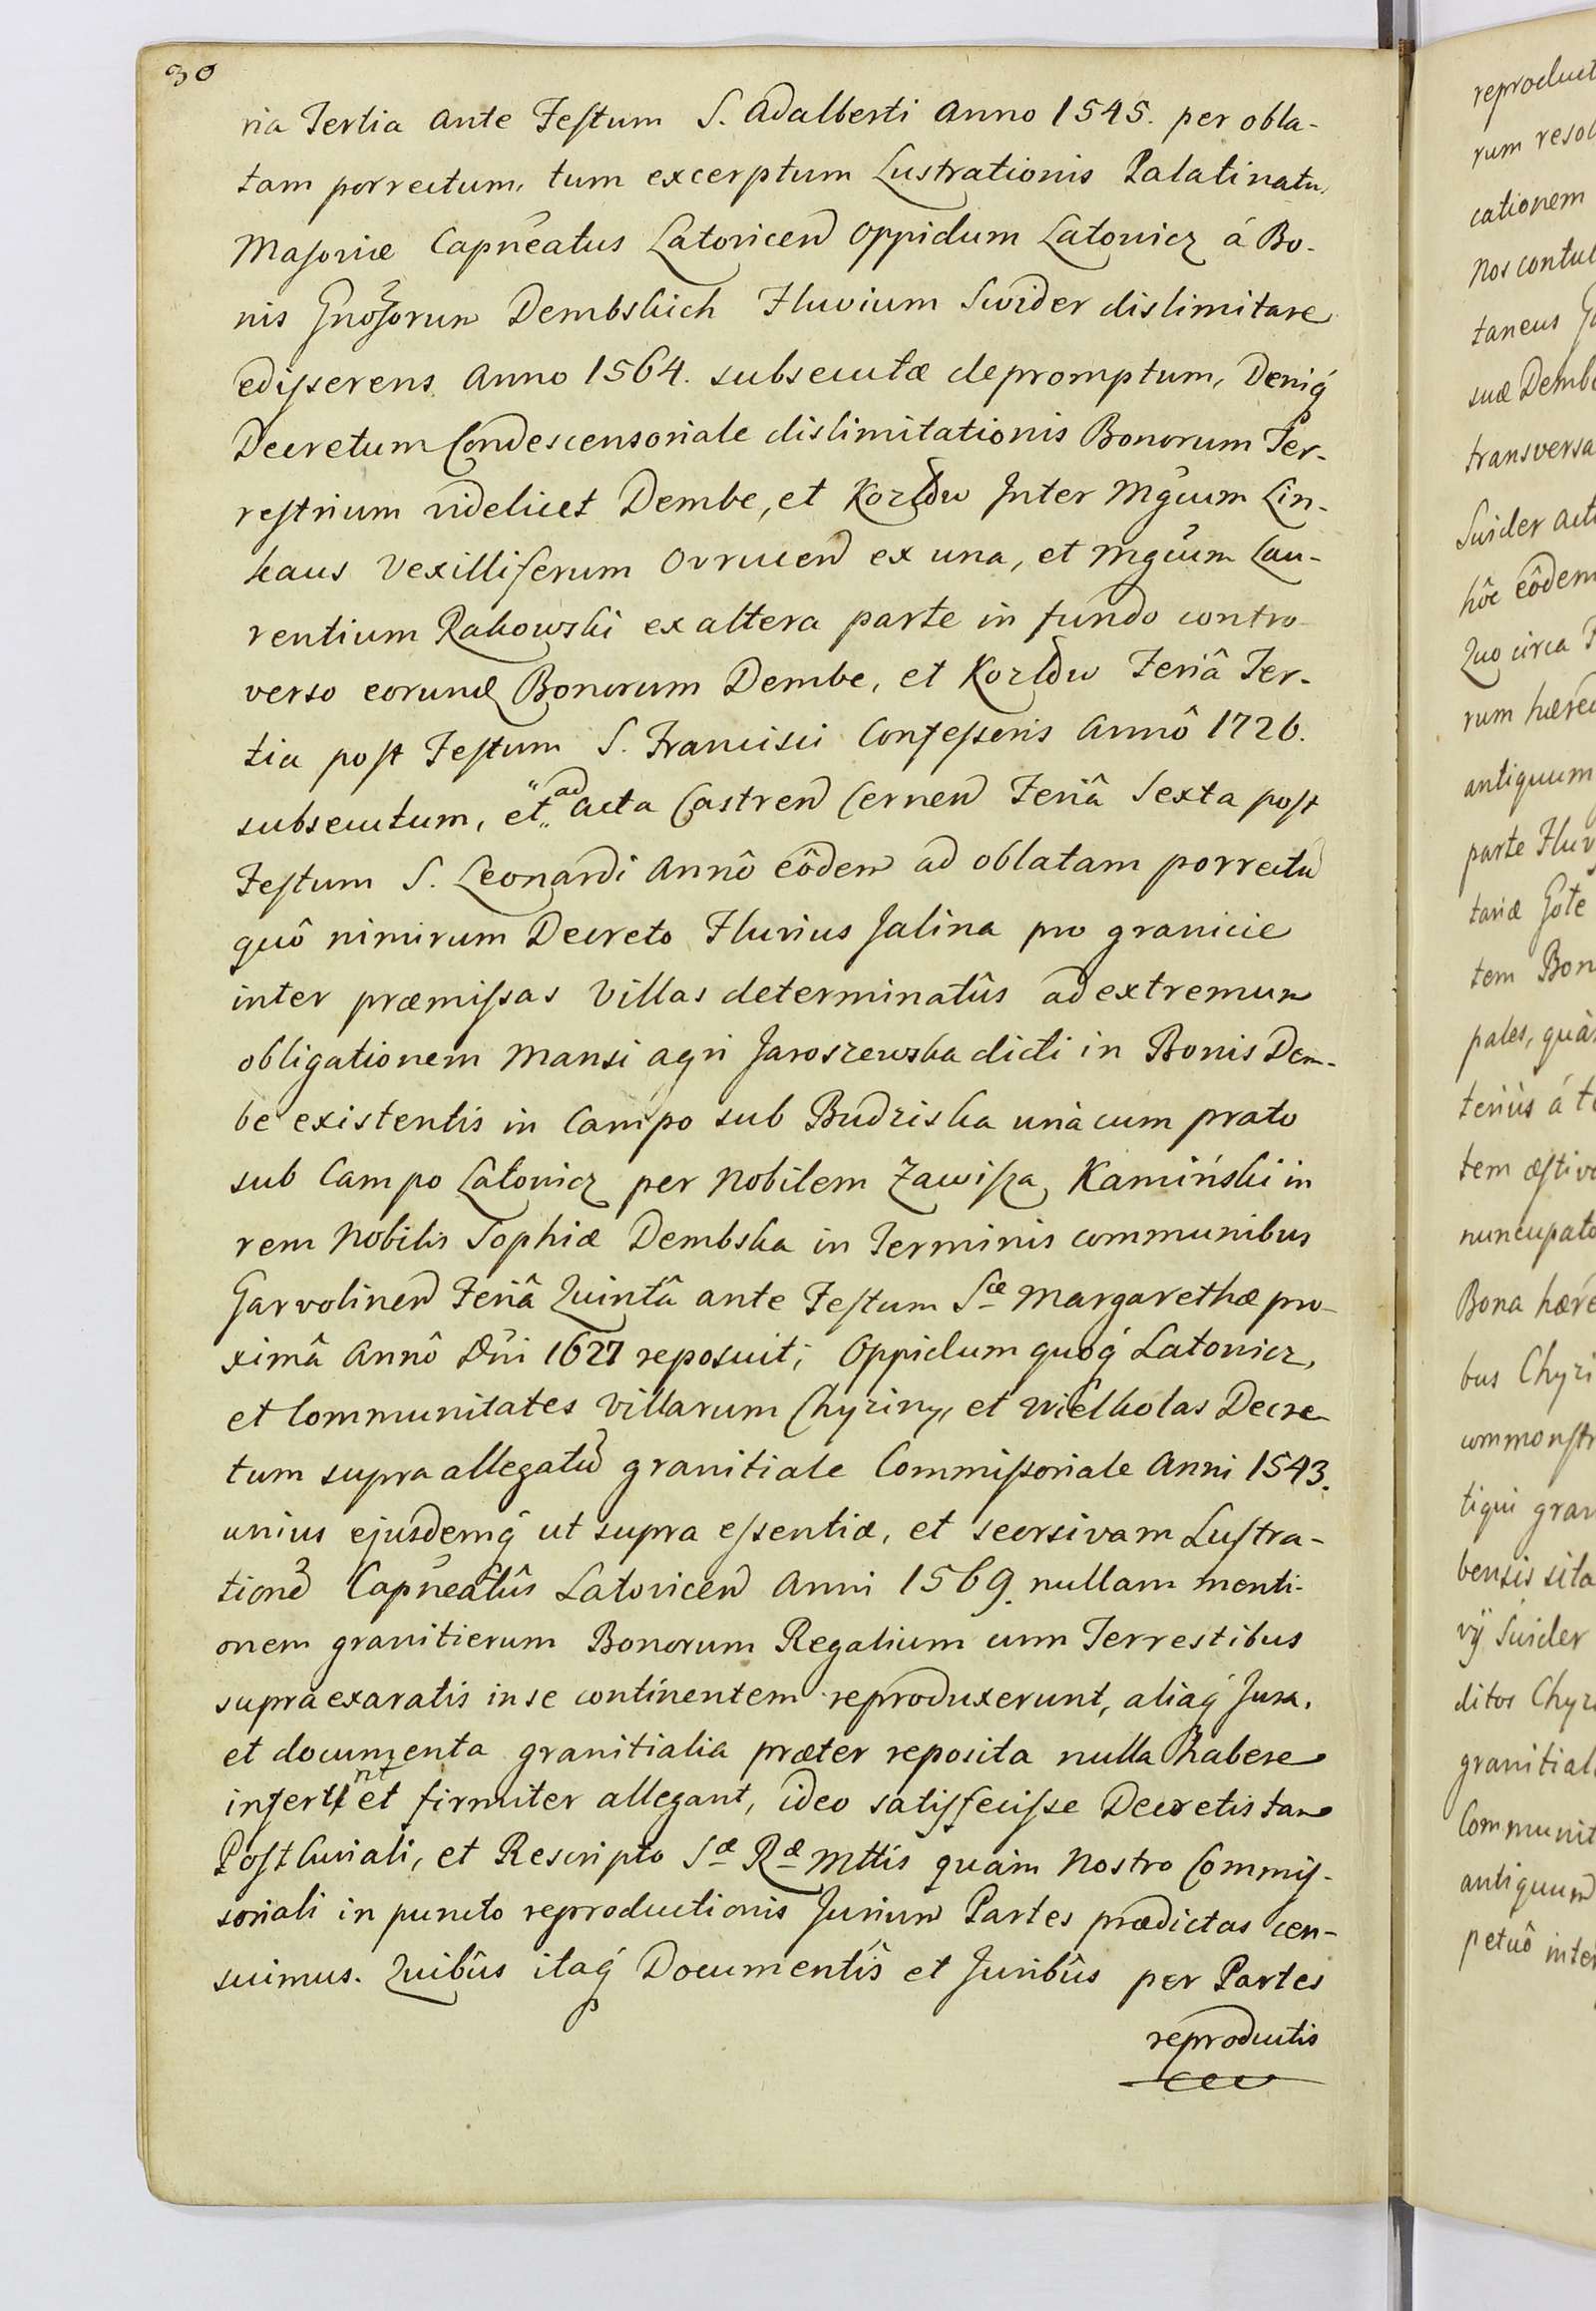 30
ria Tertia ante Festum S. Adalberti Anno 1545. per obla-
tam porrectum, tum excerptum Lustrationis Palatinatu
Masoviæ Capneatus Latovicen Oppidum Latovicz á Bo-
nis Gnosorum Dembskich Fluvium Swider dislimitare
edisserens Anno 1564. subsecutæ depromptum, Deniq́
Decretum Condescensoriale dislimitationis Bonorum Ter-
restrium videlicet Dembe, et Kozłow Inter Mgcum Lin-
kaus Vexilliferum Ovrucen ex una, et Mgcum Lau-
rentium Rakowski ex altera parte in fundo contro-
verso eorund Bonorum Dembe, et Kozłow Feriâ Ter-
tia post Festum S. Francisci Confessoris Annô 1726.
subsecutum, et ad Acta Castren Cernen Feriâ Sexta post
Festum S. Leonardi Annô eôdem ad oblatam porrectu
quô nimirum Decreto Fluvius Jalina pro granicie
inter præmissas Villas determinatûs ad extremum
obligationem Mansi agri Jaroszewska dicti in Bonis Dem-
be existentis in Campo sub Budziska unà cum prato
sub Campo Latovicz per Nobilem Zawisza Kamiński in
rem Nobilis Sophiæ Dembska in Terminis communibus
Garvolinen Feriâ Quintâ ante Festum Scæ Margarethæ pro-
ximâ Annô Dñi 1627 reposuit; Oppidum quoq́ Latovicz,
et Communitates Villarum Chyziny, et Wielholas Decre
tum supra allegatu granitiale Commissoriale Anni 1543.
unius ejusdemq́ ut supra essentiæ, et seorsivam Lustra-
tione Capneatûs Latovicen Anni 1569. nullam menti-
onem granitierum Bonorum Regalium cum Terrestibus
supra exaratis in se continentem reproduxerunt, aliaq́ Jura,
et documenta granitialia præter reposita nulla habere
inferunt et firmiter allegant, ideo satisfecisse Decretis tam
PostCuriali, et Rescripto Sæ Ræ Mttis quàm Nostro Commis-
soriali in puncto reproductionis Jurium Partes prædictas cen-
suimus. Quibûs itaq́ Documentîs et Juribûs per Partes
reproductis
reproduct
rum resol
cationem
Nos contul
taneus
suæ Dembe
transversa
Swider
hôc eôdem
Quo circa
rum hæred
antiquum
parte Fluv
tariæ Gote
tem Bon
pales, quà
teriùs á
tem æstiv
nuncupato
Bona hære
bus Chyzi
commonstr
tiqui gran
bensis sita
vij Swider
ditos Chyz
granitial
Communit
antiquum
petuô inter